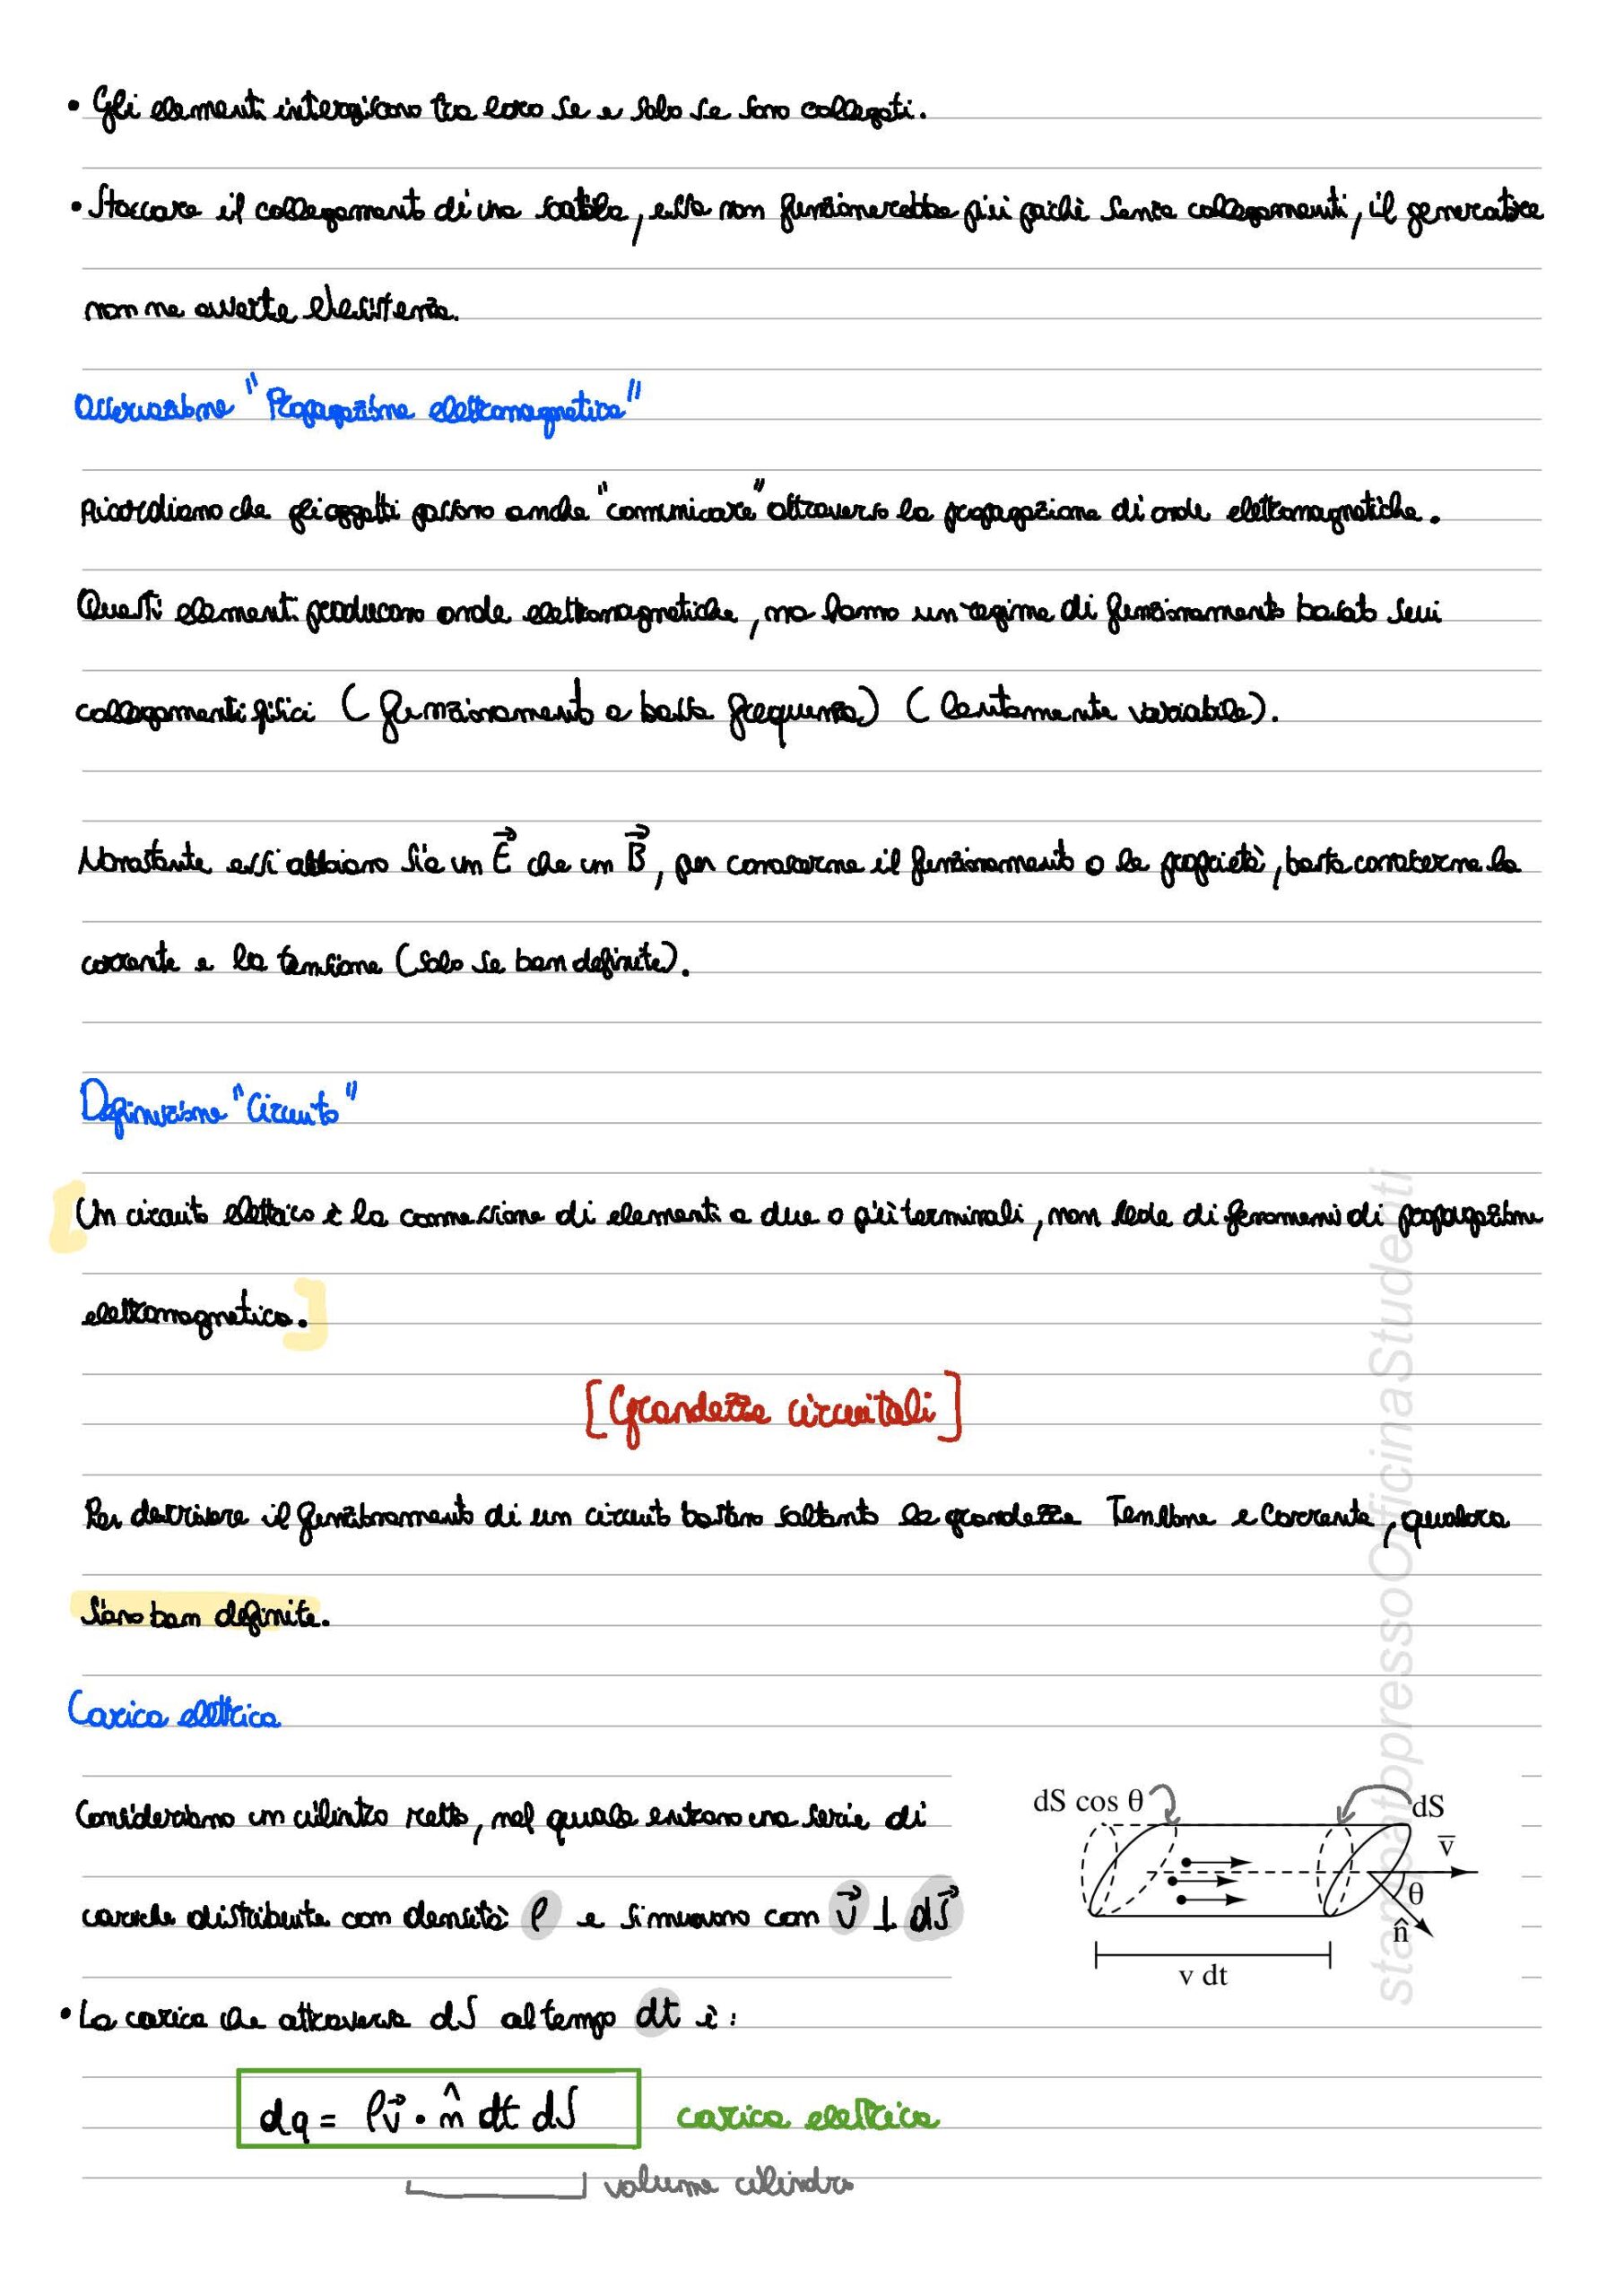 • Gli elementi interagiscono tra loro se e solo se sono collegati.
• Staccare il collegamento di una scatola, essa non funzionerebbe più poiché senza collegamenti, il generatore
non ne avverte l'esistenza.
Osservazione "Propagazione elettromagnetica"
Ricordiamo che gli oggetti possono anche "comunicare" attraverso la propagazione di onde elettromagnetiche.
Questi elementi producono onde elettromagnetiche, ma hanno un regime di funzionamento basato sui
collegamenti fisici (funzionamento a bassa frequenza) (lentamente variabile).
Nonostante essi abbiano sia un E⃗ che un B⃗, per conoscerne il funzionamento o le proprietà, basta conoscerne la
corrente e la tensione (solo se ben definite).
Definizione "Circuito"
[Un circuito elettrico è la connessione di elementi a due o più terminali, non sede di fenomeni di propagazione
elettromagnetica.]
[Grandezze circuitali]
Per descrivere il funzionamento di un circuito bastano soltanto le grandezze Tensione e Corrente, qualora
siano ben definite.
Carica elettrica
Consideriamo un cilindro retto, nel quale entrano una serie di
cariche distribuite con densità ρ e si muovono con v⃗ ⊥ dS⃗
dS cos θ
dS
v̅
θ
n̂
v dt
• La carica che attraversa dS al tempo dt è:
dq = ρv⃗ · n̂ dt dS carica elettrica
volume cilindro
stampatopressoOfficinaStudenti